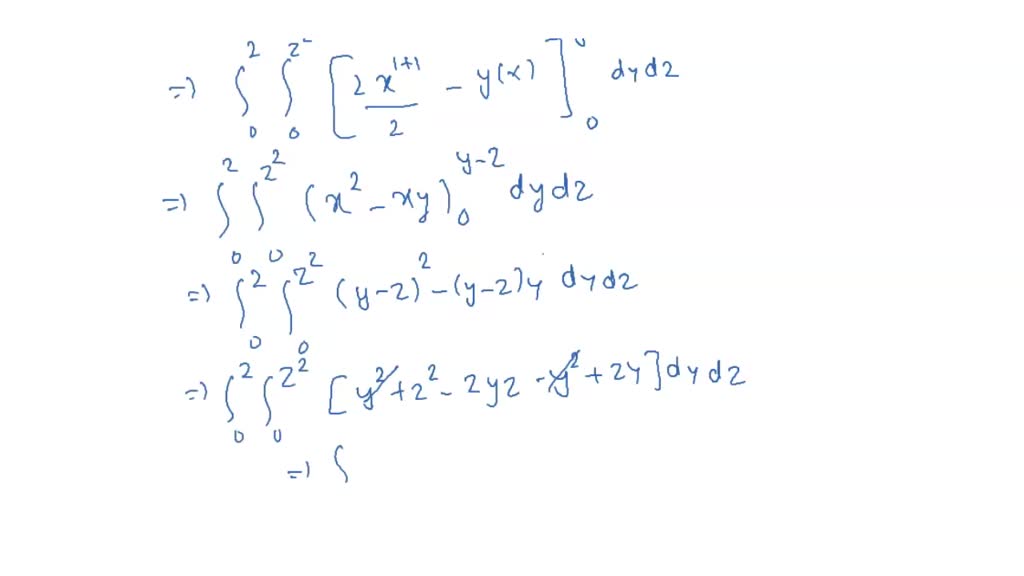 =) ∫₀² ∫₀^{z²} [2x^{1+1}/2 - y(x)]₀^{y} dydz
=) ∫₀² ∫₀^{z²} (x² - xy)₀^{y-z} dydz
=) ∫₀² ∫₀^{z²} (y-z)² - (y-z)y dydz
=) ∫₀² ∫₀^{z²} [y² + z² - 2yz - y² + zy] dydz
=) ∫